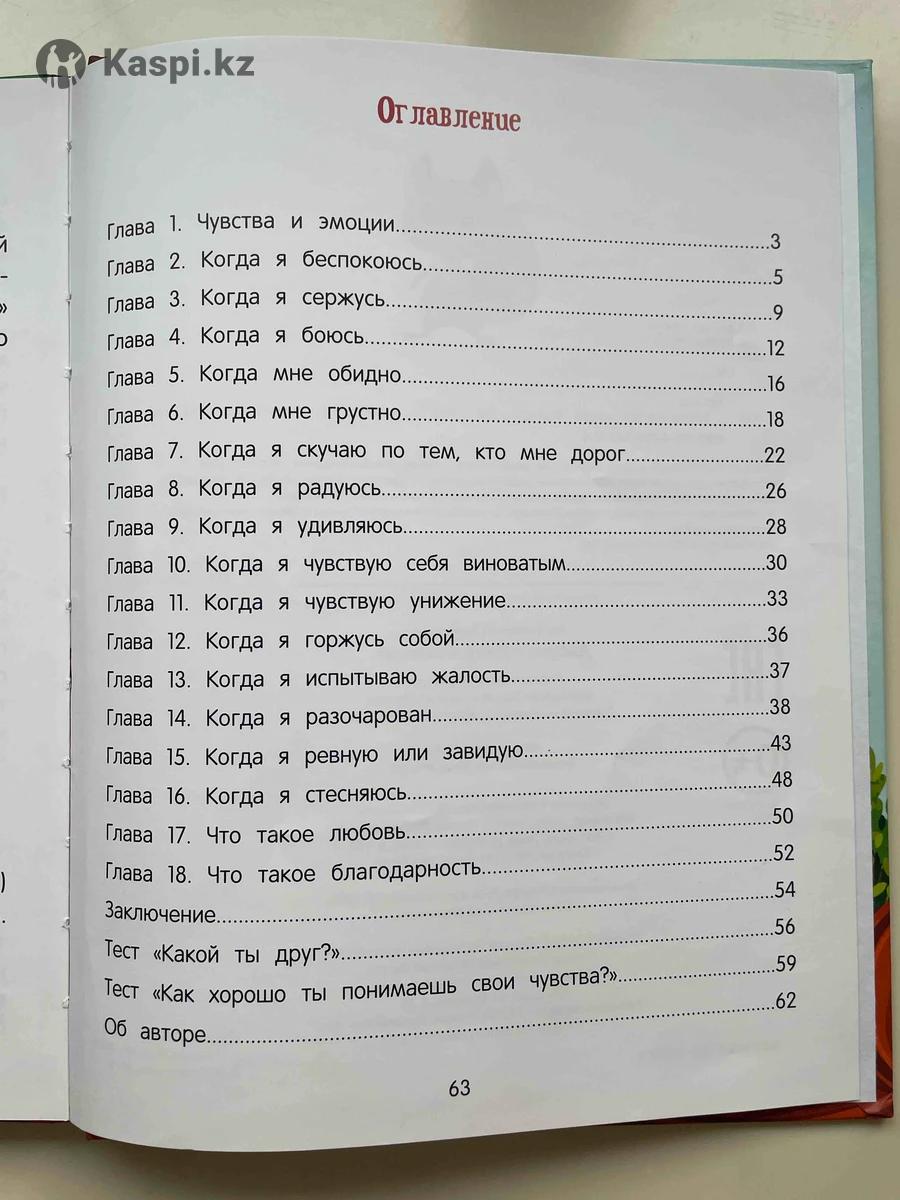 Kaspi.kz
Оглавление
Глава 1. Чувства и эмоции........3
Глава 2. Когда я беспокоюсь........5
Глава 3. Когда я сержусь........9
Глава 4. Когда я боюсь........12
Глава 5. Когда мне обидно........16
Глава 6. Когда мне грустно........18
Глава 7. Когда я скучаю по тем, кто мне дорог........22
Глава 8. Когда я радуюсь........26
Глава 9. Когда я удивляюсь........28
Глава 10. Когда я чувствую себя виноватым........30
Глава 11. Когда я чувствую унижение........33
Глава 12. Когда я горжусь собой........36
Глава 13. Когда я испытываю жалость........37
Глава 14. Когда я разочарован........38
Глава 15. Когда я ревную или завидую........43
Глава 16. Когда я стесняюсь........48
Глава 17. Что такое любовь........50
Глава 18. Что такое благодарность........52
Заключение........54
Тест «Какой ты друг?»........56
Тест «Как хорошо ты понимаешь свои чувства?»........59
Об авторе........62
63